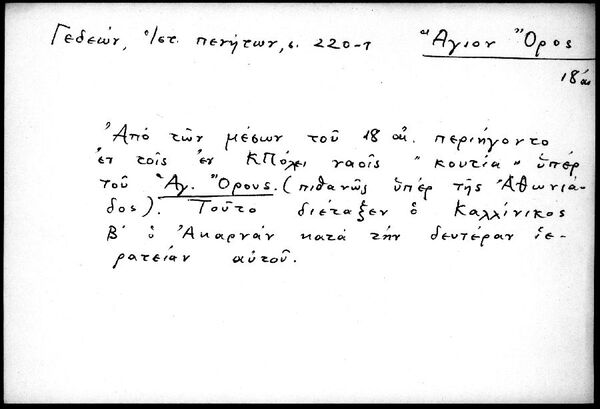 Γεδεών, Ἱστ. πενήτων, σ. 220-1
Ἅγιον Ὄρος
18 αι
Ἀπό τῶν μέσων τοῦ 18 αἰ. περιήγοντο
ἐν τοῖς ἐν ΚΠόλει ναοῖς "κουτία" ὑπέρ
τοῦ Ἁγ. Ὄρους. (πιθανῶς ὑπέρ τῆς Ἀθωνιά-
δος). Τοῦτο διέταξεν ὁ Καλλίνικος
Β' ὁ Ἀκαρνάν κατά τήν δευτέραν ἱε-
ρατείαν αὐτοῦ.